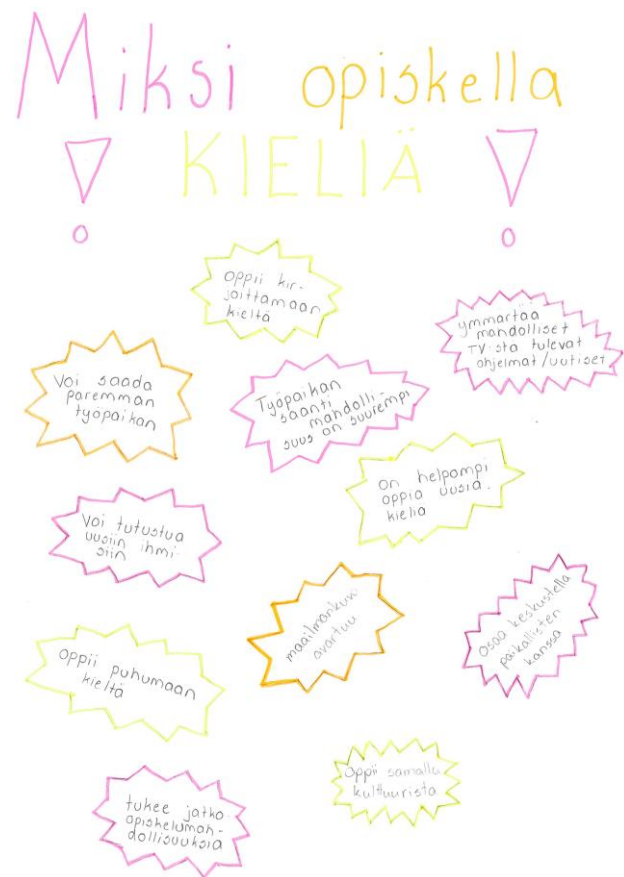 Miksi opiskella
! KIELIÄ !
oppii kir-
joittamaan
kieltä
ymmärtää
mahdolliset
TV-stä tulevat
ohjelmat/uutiset
Voi saada
paremman
työpaikan
Työpaikan
saanti
mahdolli-
suus on suurempi
on helpompi
oppia uusia
kieliä
Voi tutustua
uusiin ihmi-
siin
maailmankuva
avartuu
osaa keskustella
paikallisten
kanssa
oppii puhumaan
kieltä
oppii samalla
kulttuurista
tukee jatko-
opiskelumah-
dollisuuksia